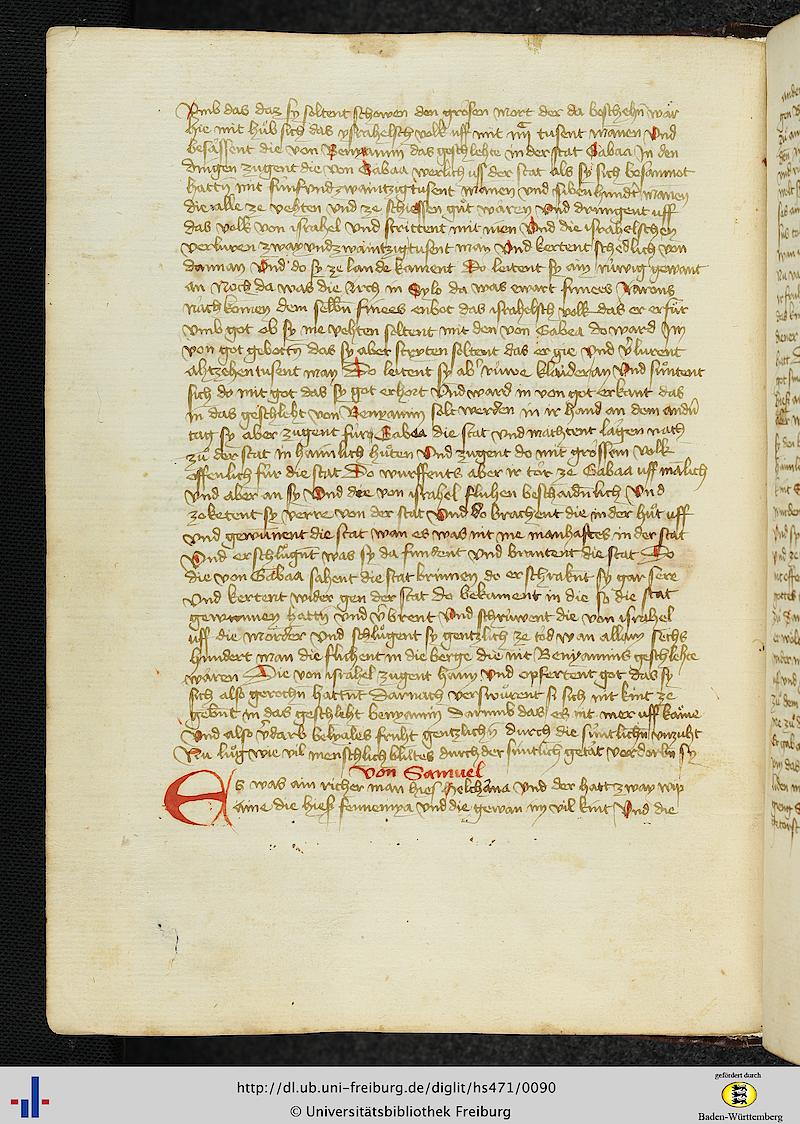 Vmb das daz sy soltent schowen den grosen mort der da beschehn wär
hie mit hüb sich das ysrahelsch volk uff mit tusent manen Vnd
besässent die von Benyamin das geschlehte in der stat Gabaa In den
dingen zugent die von Gabaa werlich uss der stat als sy sich besamnot
hattn mit fünfvndzwaintzigtusent manen vnd sibenhundt manen
die alle ze vehten vnd ze schiessen güt waren Vnd drungent uff
das volk von israhel vnd strittent mit inen Vnd die israhelschen
verluren zwayvndzwaintzigtusent man Vnd kertent schedlich von
dannan Vnd do sy ze lande kament Do leitent sy ain rüwig gewant
an Noch da was die Arch in Sylo da was ewart finees Aarons
nachkomen dem selbn finees enbot das israhelsch volk das er erfür
vmb got ob sy me vehten soltent mit den von Gabea do ward Im
von got gebottn das sy aber stryten soltent das er gie Vnd v̉lurent
ahtzehentusent man Do leitent sy ab̉ rüwe klaider an Vnd süntent
sich do mit got das sy got erhort Vnd ward in von got erkant das
in das geschleht von Benyamin solt werden in ir hand an dem andn̉
tag sy aber zugent für Gabea die stat vnd machtent lagen nach
zü der stat in haimlich hüten Vnd zugent do mit grossem volk
offenlich für die stat Do wurffents aber ir tor ze Gabaa uff mälich
vnd aber an sy Vnd die von israhel fluhen beschaidnlich Vnd
zoketent sy verre von der stat Vnd do brachent die in der hüt uff
vnd gewunent die stat wan es was nit me manhaftes in der stat
Vnd erschlügnt was sy da fundent vnd brantent die stat Do
die von Gabaa sahent die stat brinnen do erschraknt sy gar sere
Vnd kertent wider gen der stat do bekament in die so die stat
gewunnen hattn vnd v̉brent Vnd schruwent die von israhel
uff die mörder vnd schlügent sy gentzlich ze tod wan allain sechs
hundert man die fluchent in die berge die nit Benyamins geschlehte
waren Die von israhel zugent haim vnd opfertent got das sy
sich also gerochn hattnt Darnach verswürent si sich nit kint ze
gebnt in das geschleht benyamin Darumb das es nit mer uff käme
Vnd also v̉darb belyales fruht gentzlichn durch die süntlichn vnzuht
Nu lüg wie vil menschlich blütes durch der süntlich getät verdorbn sy
Von Samuel
Es was ain richer man hies Helchana Vnd der hatt zway wip
aine die hies fennennya vnd die gewan im vil kint Vnd die
http://dl.ub.uni-freiburg.de/diglit/hs471/0090
© Universitätsbibliothek Freiburg
gefördert durch
Baden-Württemberg